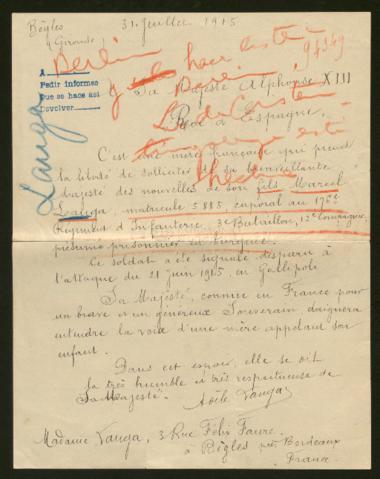 Bègles 31 Juillet 1915
(Gironde)
A
Pedir informes
Que se hace así
Devolver
Berlin
94349
Langa
Sa Majesté Alphonse XIII
Roi d'Espagne,
C'est une mère française qui prend
la liberté de solliciter de sa bienveillante
Majesté des nouvelles de son fils Marcel
Langa, matricule 5885, caporal au 176e
Régiment d'Infanterie, 3e Bataillon, 12e Compagnie
présumé prisonnier en Turquie.
Ce soldat a été signalé disparu à
l'attaque du 21 juin 1915, en Gallipoli
Sa Majesté, connue en France pour
un brave et un généreux Souverain daignera
entendre la voix d'une mère appelant son
enfant.
Dans cet espoir, elle se dit
la très humble et très respectueuse de
Sa Majesté.
Adèle Langa
Madame Langa, 3 Rue Félix Faure
à Bègles près Bordeaux
France